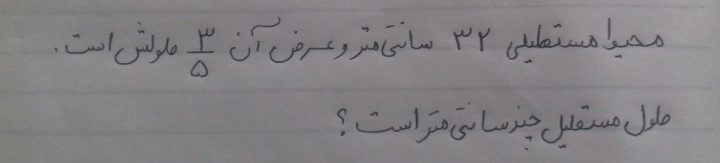 محیط مستطیلی ۳۲ سانتی متر و عرض آن ۳/۵ طولش است.
طول مستطیل چند سانتی متر است ؟